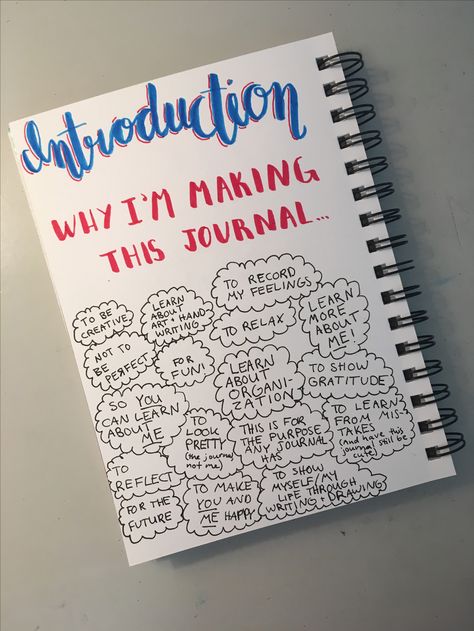 Introduction
WHY I'M MAKING
THIS JOURNAL...
TO BE
CREATIVE
LEARN
ABOUT
ART + HAND
WRITING
TO RECORD
MY FEELINGS
NOT TO
BE PERFECT
FOR
FUN!
TO RELAX
LEARN
MORE
ABOUT
ME!
SO YOU
CAN LEARN
ABOUT ME
LEARN
ABOUT
ORGANI-
ZATION
TO SHOW
GRATITUDE
TO
LOOK
PRETTY
(the journal
not me.)
THIS IS FOR
THE PURPOSE
ANY JOURNAL
HAS
TO LEARN
FROM MIS-
TAKES
(and have this
journal still be
cute)
TO
REFLECT
FOR THE
FUTURE
TO MAKE
YOU AND
ME HAPPY
TO SHOW
MYSELF/MY
LIFE THROUGH
WRITING + DRAWING